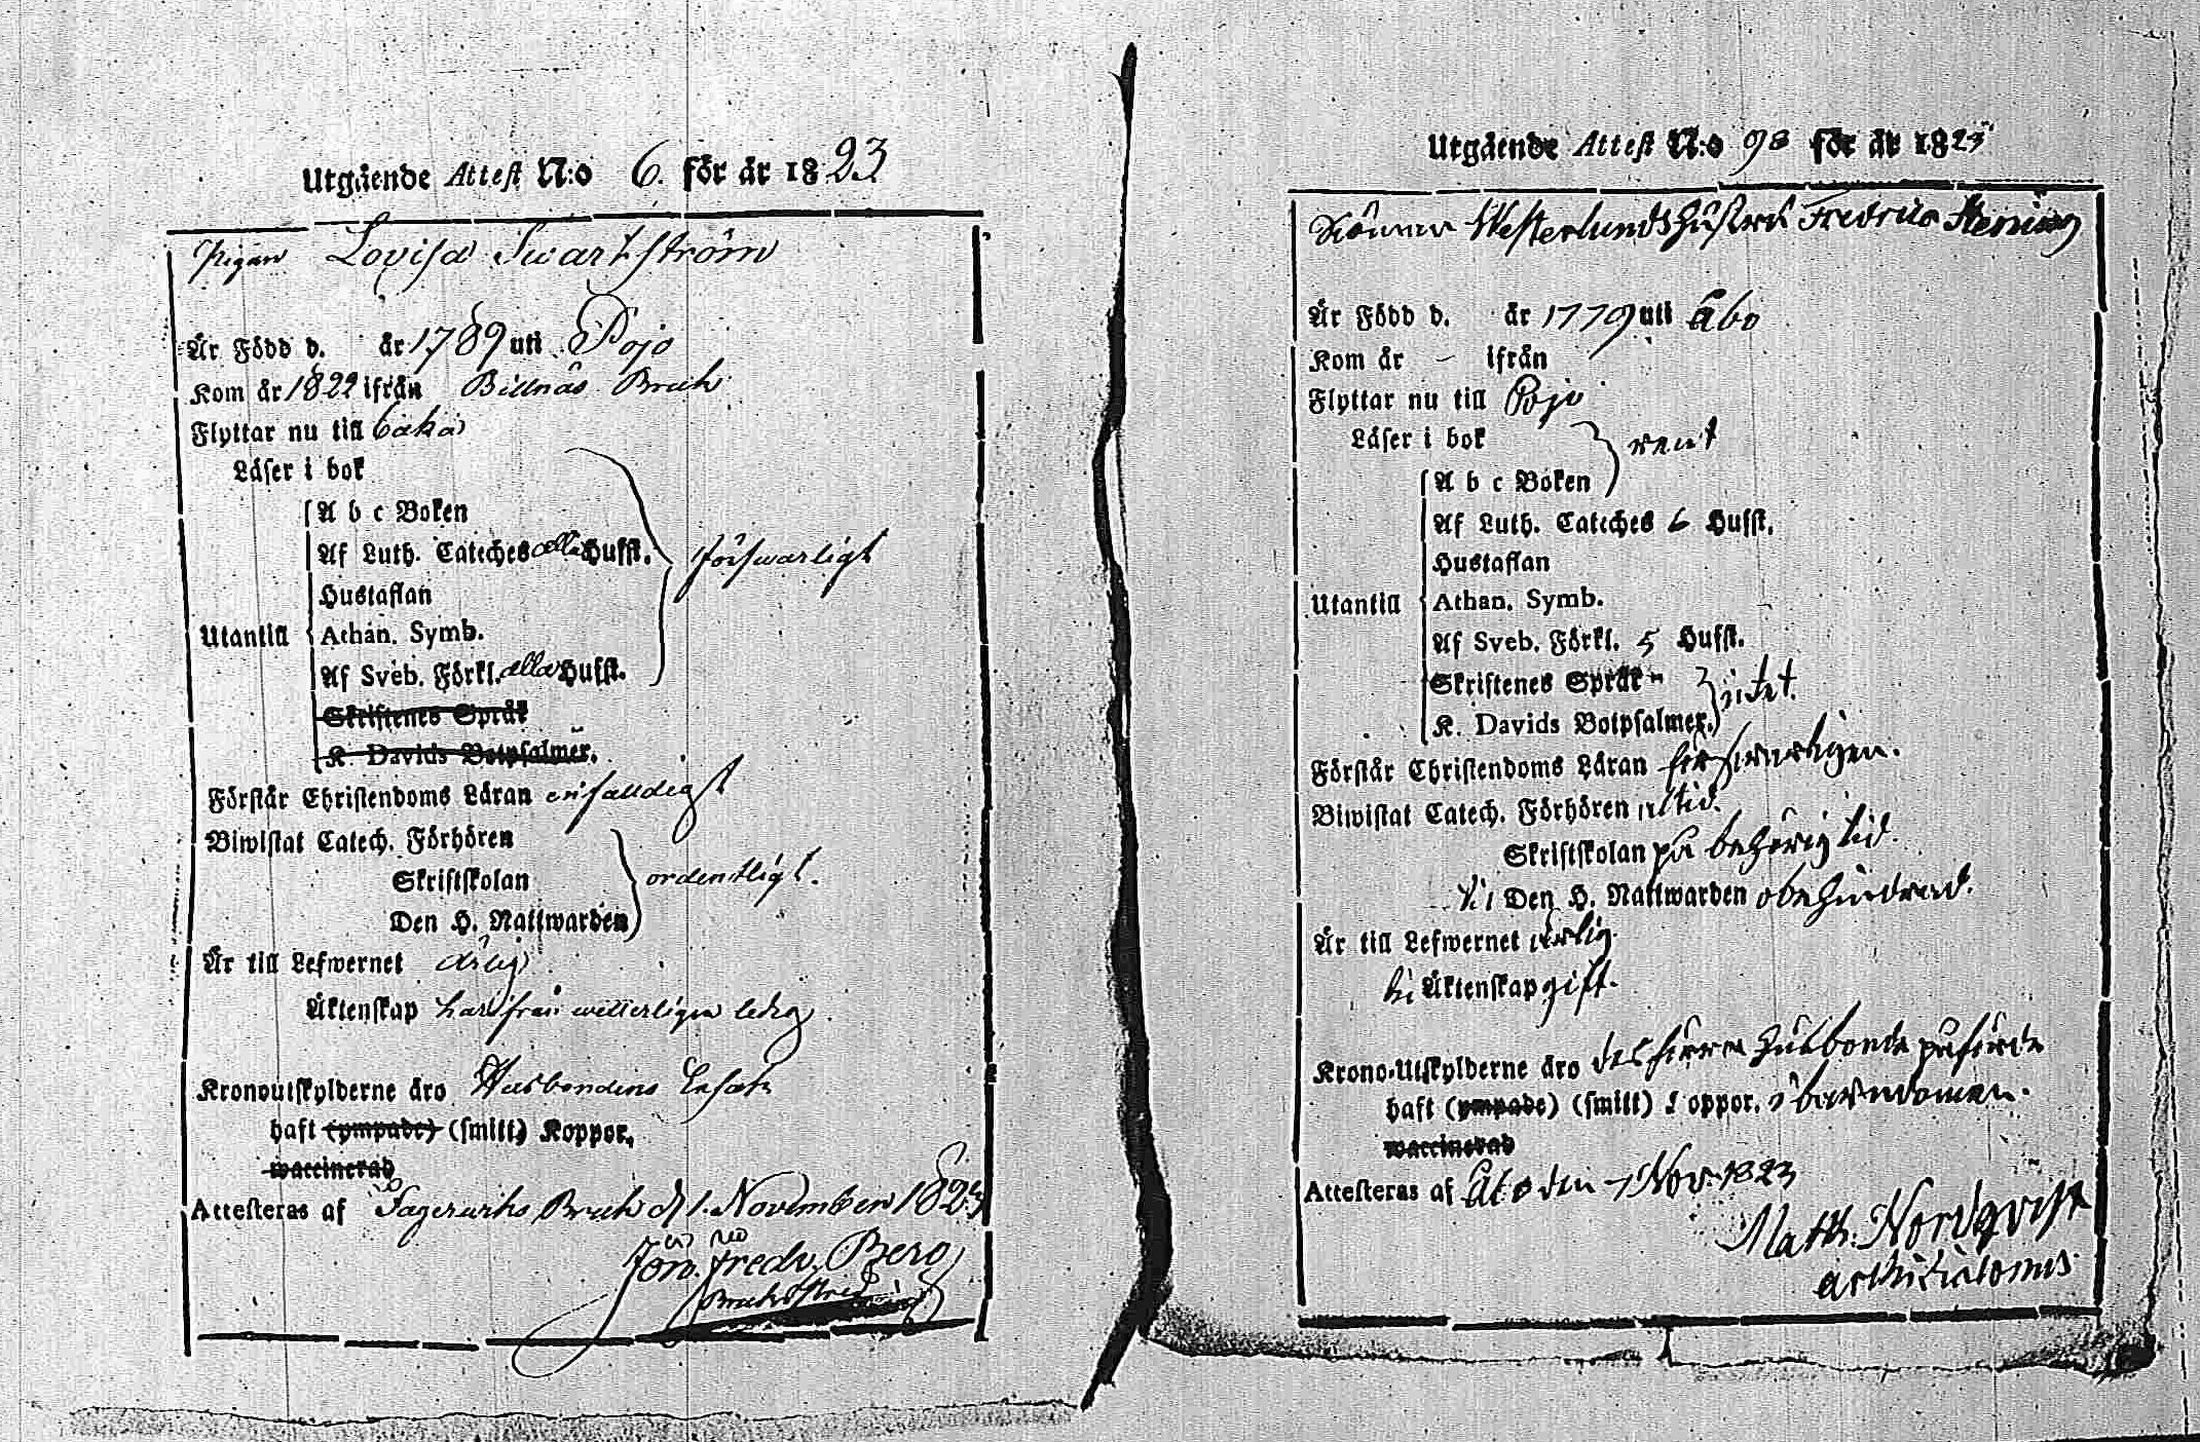 Utgående Attest N:o 6. för år 1823
Pigan Lovisa Swartström
Är Född d. år 1789 uti Pojo
Kom år 1822 ifrån Billnäs Bruk
Flyttar nu till
Läser i bok
A b c Boken
Af Luth. Cateches alla Hufst.
försvarligt
Hustaflan
Utantill Athan. Symb.
Af Sveb. Förkl. alla Hufst.
Skriftenes Språk
K. Davids Botpsalmer.
Förstår Christendoms Läran enfaldigt
Biwistat Catech. Förhören
Skriftskolan ordentligt.
Den H. Nattwarden
Är till Lefwernet ärlig
Äktenskap härifrån witterligen ledig.
Kronoutskylderne äro Husbondens
haft (ympade) (smitt) Koppor.
waccinerad
Attesteras af Fagerwiks Bruk d 1. November 1823
Jön. Fredr. Berg
Utgående Attest N:o 98 för år 1823
Westerlunds Hustru Fredrica
Är Född d. år 1779 uti Åbo
Kom år - ifrån
Flyttar nu till Pojo
Läser i bok
rent
A b c Boken
Af Luth. Cateches 6 Hufst.
Hustaflan
Utantill Athan. Symb.
Af Sveb. Förkl. 5 Hufst.
Skriftenes Språk
intet.
K. Davids Botpsalmer.
Förstår Christendoms Läran försvarligen.
Biwistat Catech. Förhören altid.
Skriftskolan på behörig tid.
til Den H. Nattwarden obehindrad.
Är till Lefwernet ärlig.
til Äktenskap gift.
Krono-Utskylderne äro des förra Husbonde påförde
haft (ympade) (smitt) Koppor. i barndomen.
waccinerad
Attesteras af Åbo den 7 Nov. 1823
Matth. Nordqvist
archidiaconus